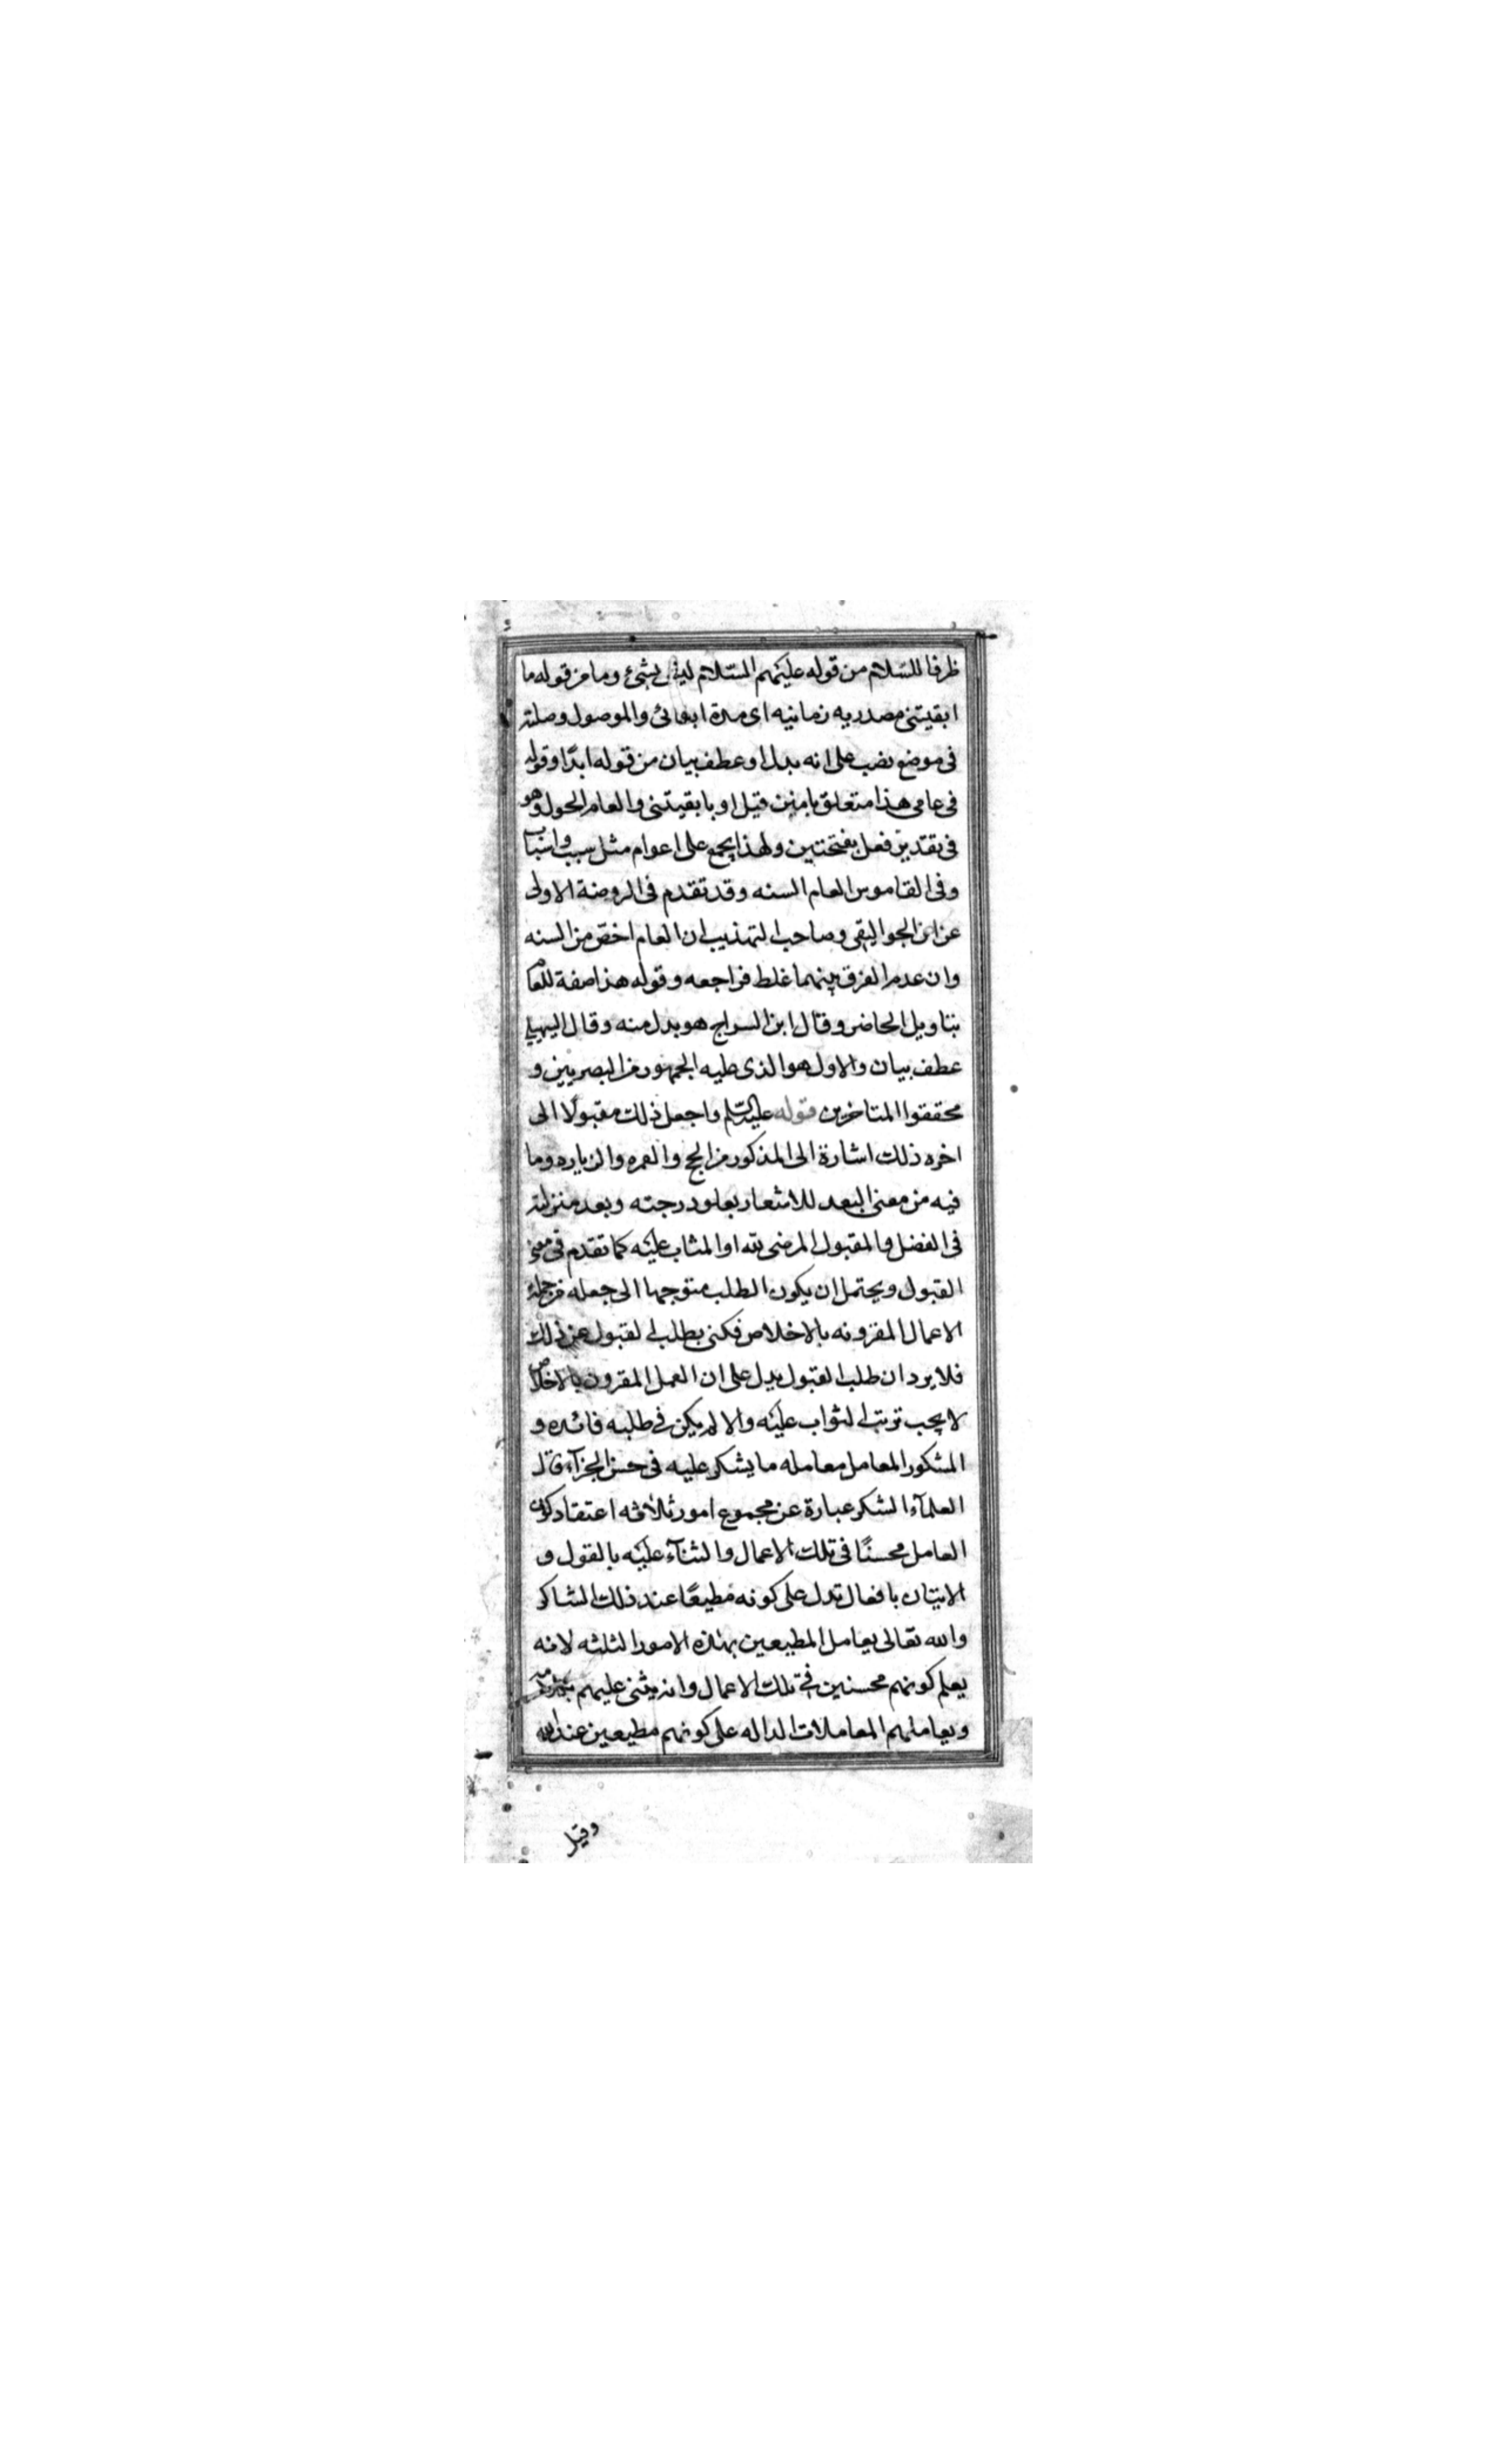 ظرفا للسّلام من قوله عليهم السّلام ليس بشئ وما من قوله ما
ابقيتنى مصدريه زمانيه اى مدة ابقائى والموصول وصلته
فى موضع نصب على انه بدل او عطف بيان من قوله ابدًا وقوله
فى عامى هذا متعلق بامنن قيل او بابقيتنى والعام الحول وهو
فى تقدير فعل بفتحتين ولهذا يجمع على اعوام مثل سبب واسباب
وفى القاموس العام السنه وقد تقدم فى الروضة الاولى
عن ابن الجواليقى وصاحب التهذيب ان العام اخص من السنه
وان عدم الفرق بينهما غلط فراجعه وقوله هذا صفة للعام
بتاويل الحاضر وقال ابن السراج هو بدل منه وقال السهيلى
عطف بيان والاول هو الذى عليه الجمهور من البصريين و
محققوا المتاخرين قوله عليه السّلم واجعل ذلك مقبولا الى
اخره ذلك اشارة الى المذكور من الحج والعمره والزياره وما
فيه من معنى البعد للاشعار بعلو درجته وبعد منزلته
فى الفضل والمقبول المرضى لله او المثاب عليه كما تقدم فى معنى
القبول ويحتمل ان يكون الطلب متوجها الى جعله من جملة
الاعمال المقرونه بالاخلاص فكنى بطلب القبول عن ذلك
فلا يرد ان طلب القبول يدل على ان العمل المقرون بالاخلاص
لا يجب ترتب الثواب عليه والا لم يكن فى طلبه فائده و
المشكور المعامل معامله ما يشكر عليه فى حسن الجزآء قال
العلمآء الشكر عبارة عن مجموع امور ثلاثه اعتقاد كون
العامل محسنًا فى تلك الاعمال والثنآء عليه بالقول و
الاتيان بافعال تدل على كونه مطيعًا عند ذلك الشاكر
والله تعالى يعامل المطيعين بهذه الامور الثلثه لانه
يعلم كونهم محسنين فى تلك الاعمال وانه يثنى عليهم
ويعاملهم المعاملات الداله على كونهم مطيعين عند الله
وقيل